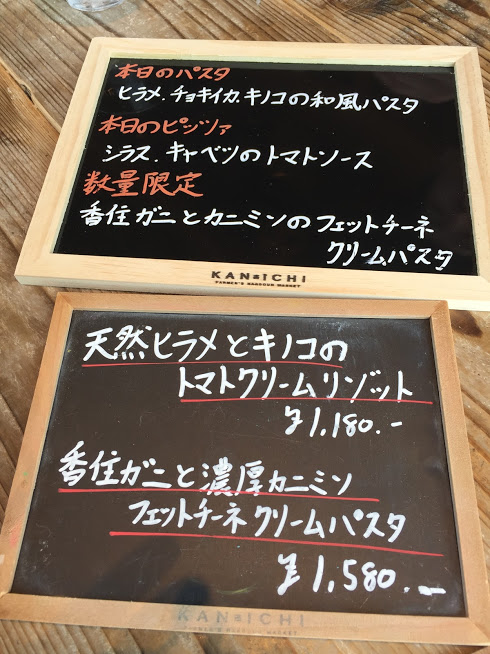 本日のパスタ
ヒラメ.チョキイカ.キノコの和風パスタ
本日のピッツァ
シラス.キャベツのトマトソース
数量限定
香住ガニとカニミソのフェットチーネ
クリームパスタ
KANICHI
FARMER'S HARBOUR MARKET
天然ヒラメとキノコの
トマトクリームリゾット
¥1,180.-
香住ガニと濃厚カニミソ
フェットチーネクリームパスタ
¥1,580.-
KANICHI
FARMER'S HARBOUR MARKET